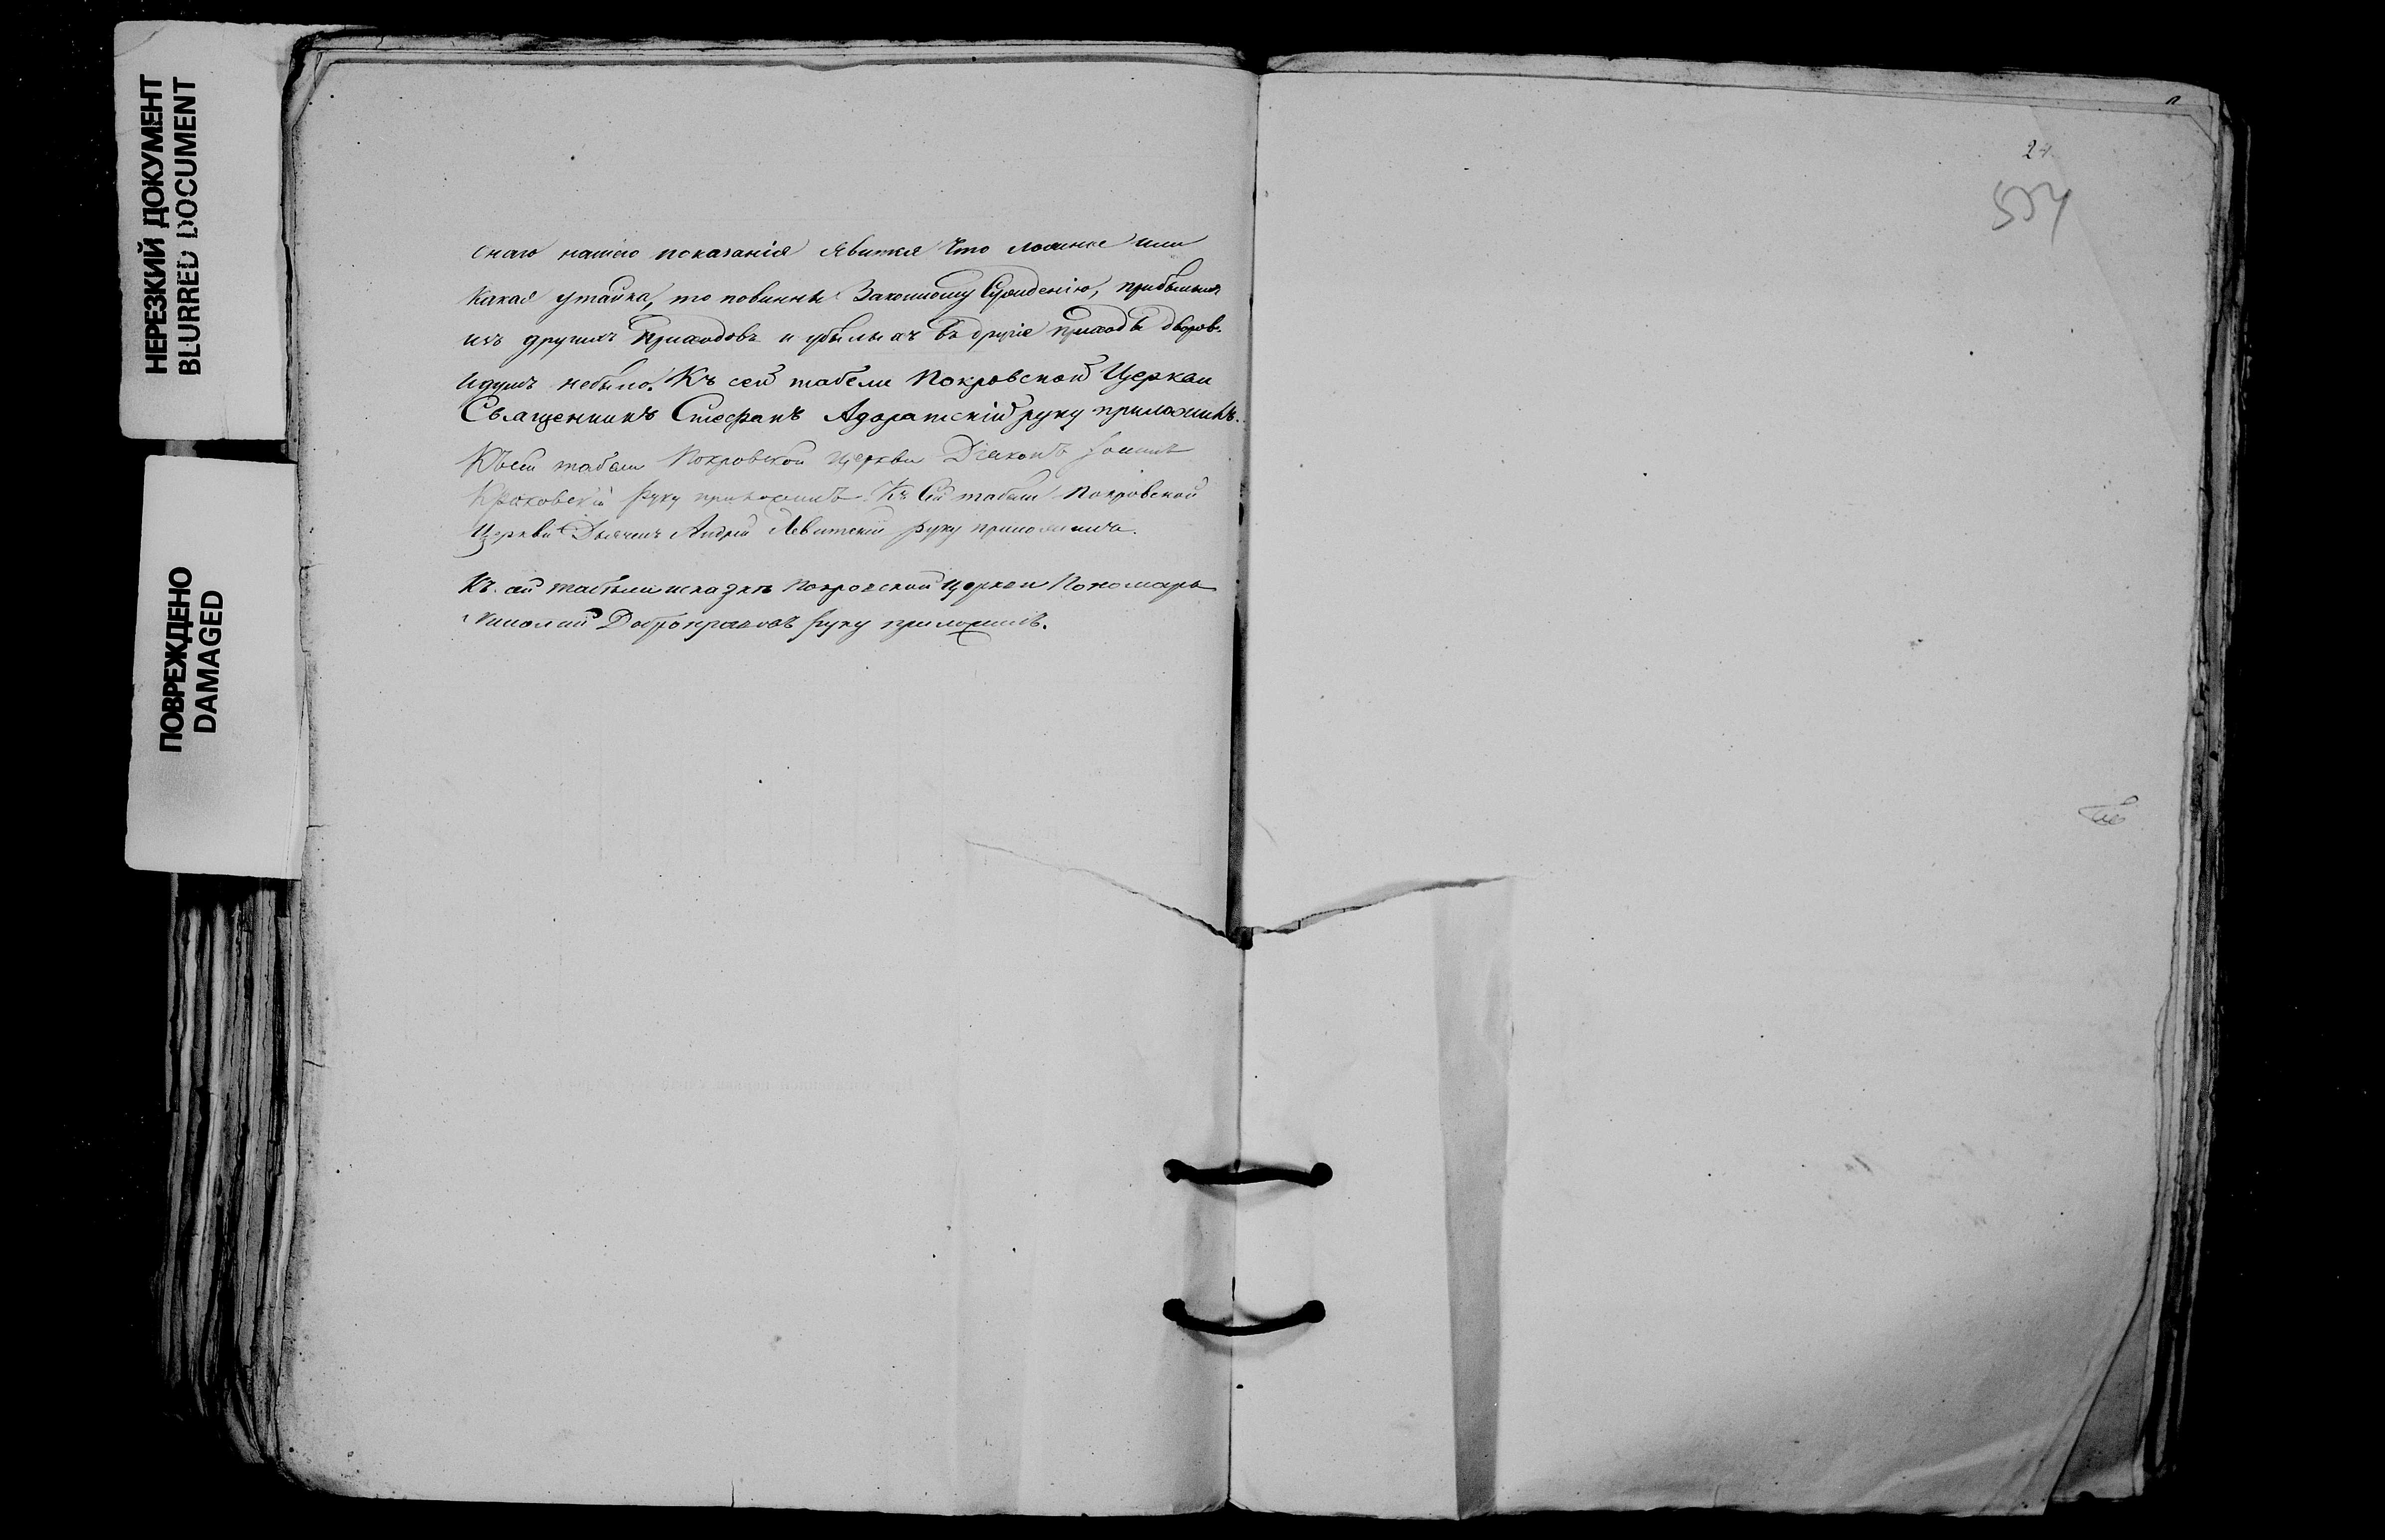 НЕРЕЗКИЙ ДОКУМЕНТ
BLURRED DOCUMENT
ПОВРЕЖДЕНО
DAMAGED
онаго нашего показанія явится что ложное или
какая утайка, то повинны законному сужденію, прибылыхъ
изъ другихъ приходовъ и убылыхъ въ другіе приходы дворовъ
и душъ небыло. Къ сей табели Покровской Церкви
Священникъ Стефанъ Адоратскій руку приложилъ.
Къ сей табели Покровской церкви Діаконъ
руку приложилъ. Къ сей табели Покровской
Церкви Дьячекъ Андрей Левитскій руку приложилъ.
Къ сей табели Покровской церкви Пономарь
Николай руку приложилъ.